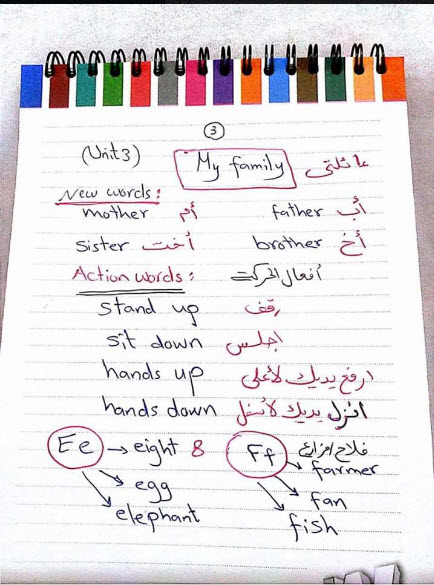 3
(Unit 3) My family عائلتى
New words:
mother أم father أب
sister أخت brother أخ
Action words: أفعال الحركة
stand up قف
sit down اجلس
hands up ارفع يديك لأعلى
hands down انزل يديك لأسفل
Ee → eight 8 Ff فلاح
farmer
egg fan
elephant fish